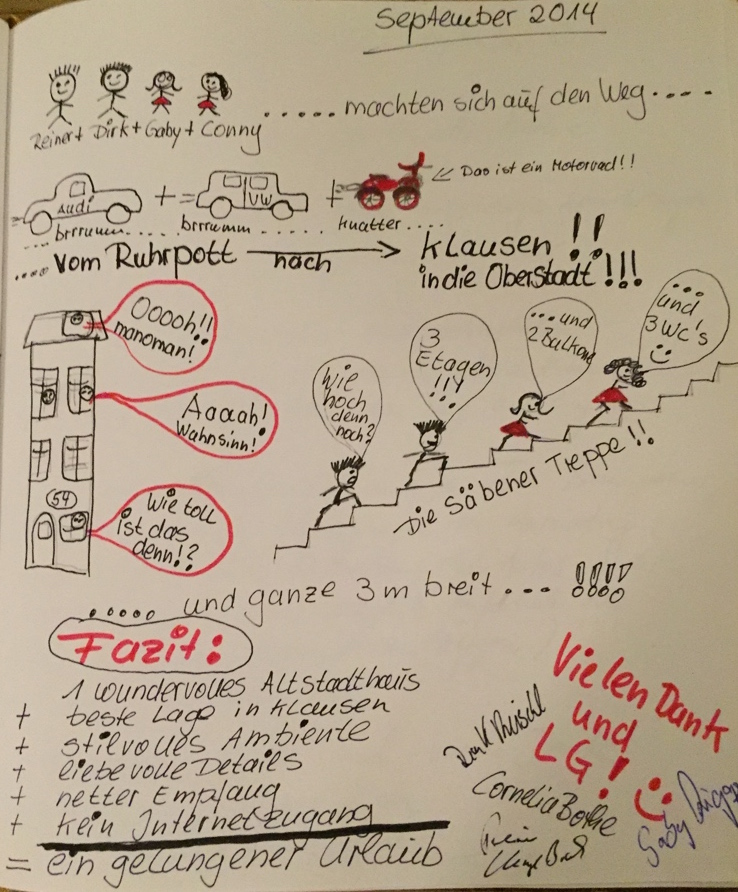 September 2014
Reiner + Dirk + Gaby + Conny
..... machten sich auf den Weg....
Audi + VW +
Das ist ein Motorrad!!
... brruumm.... brruumm ..... knatter....
.... vom Ruhrpott nach Klausen !!
in die Oberstadt !!!
Ooooh!!
manoman!
Aaaah!
Wahnsinn!
54
Wie toll
ist das
denn!?
Wie
hoch
denn
noch?
3
Etagen
!!!
...und
2 Balkone
...
und
3 WC's
Die Säbener Treppe!!
..... und ganze 3 m breit... !!!!
Fazit:
1 wundervolles Altstadthaus
+ beste Lage in Klausen
+ stilvolles Ambiente
+ liebevolle Details
+ netter Empfang
+ kein Internetzugang
= ein gelungener Urlaub
Vielen Dank
und
LG!
Cornelia Bothe
Gaby